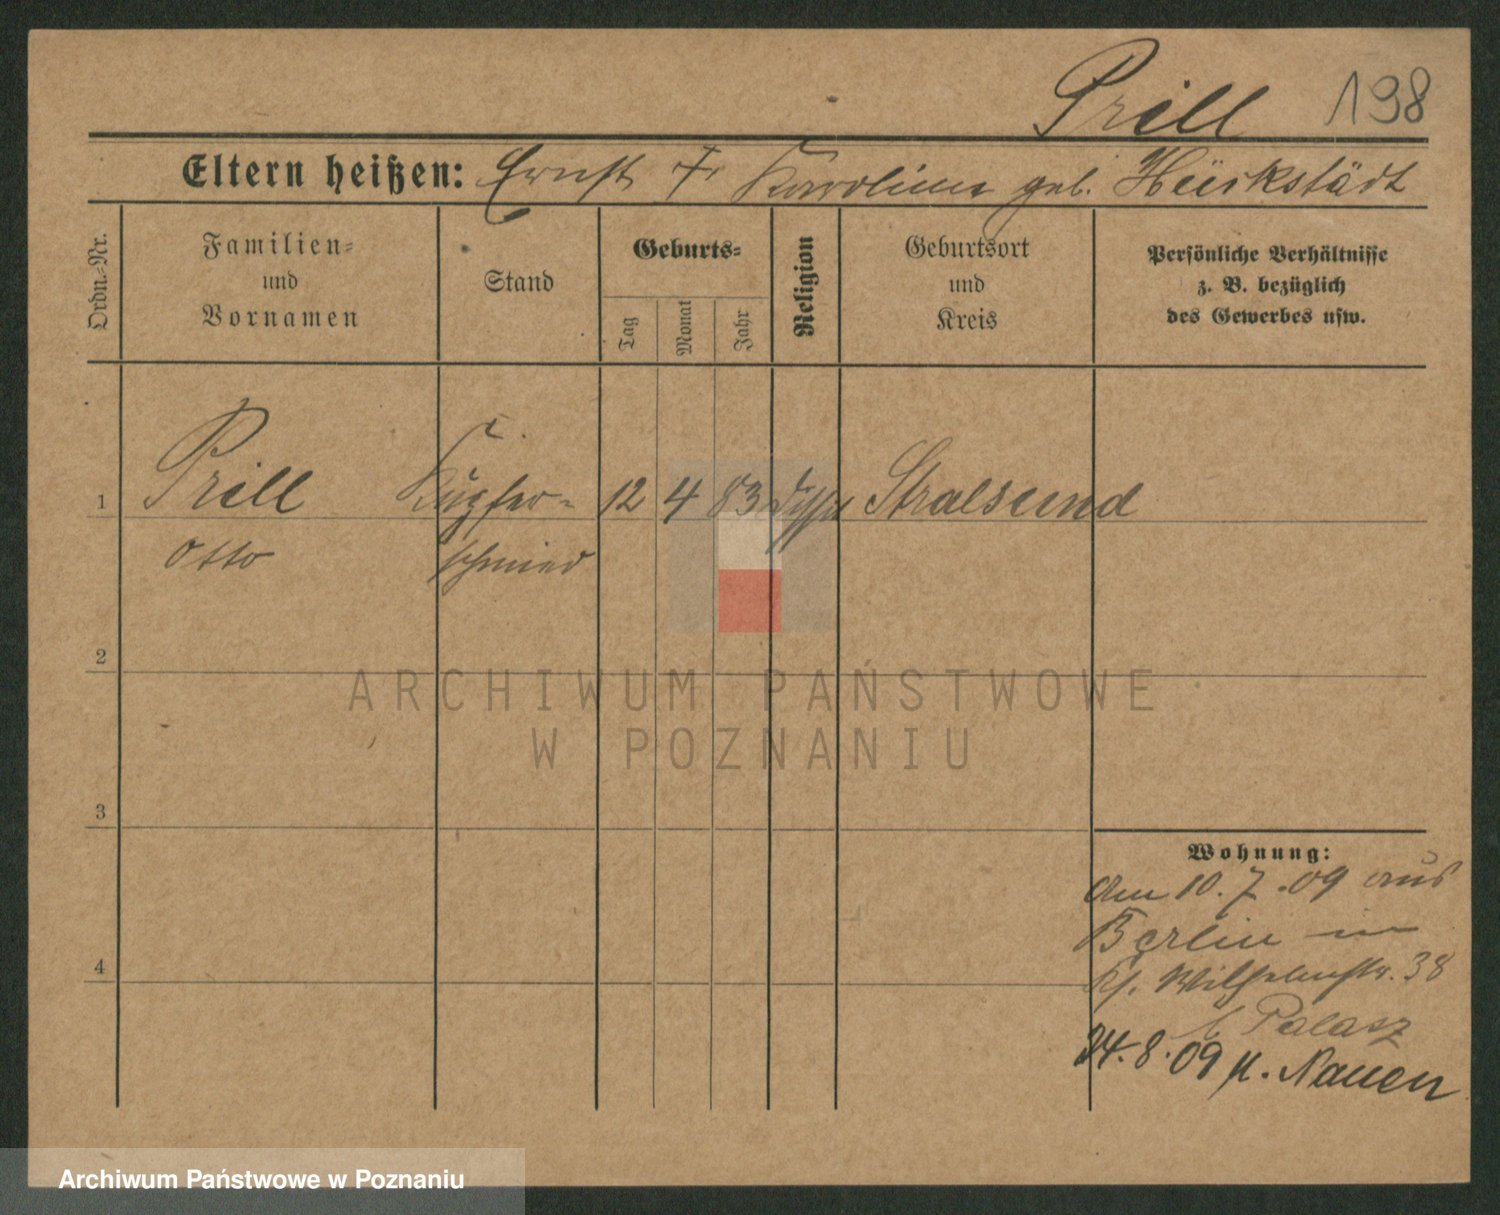 Prill 198
Eltern heißen: Ernst Fr Karoline geb. Hückstädt
Ordn.-Nr.
Familien-
und
Vornamen
Stand
Geburts-
Tag
Monat
Jahr
Religion
Geburtsort
und
Kreis
Persönliche Verhältnisse
z. B. bezüglich
des Gewerbes usw.
1 Prill Kupfer- 12 4 83 Stralsund
Otto schmied
2
3
4
ARCHIWUM PAŃSTWOWE
W POZNANIU
Wohnung:
Am 10.7.09 aus
Berlin in
Wilhelmstr. 38
b Palasz
24.8.09 n. Nauen
Archiwum Państwowe w Poznaniu